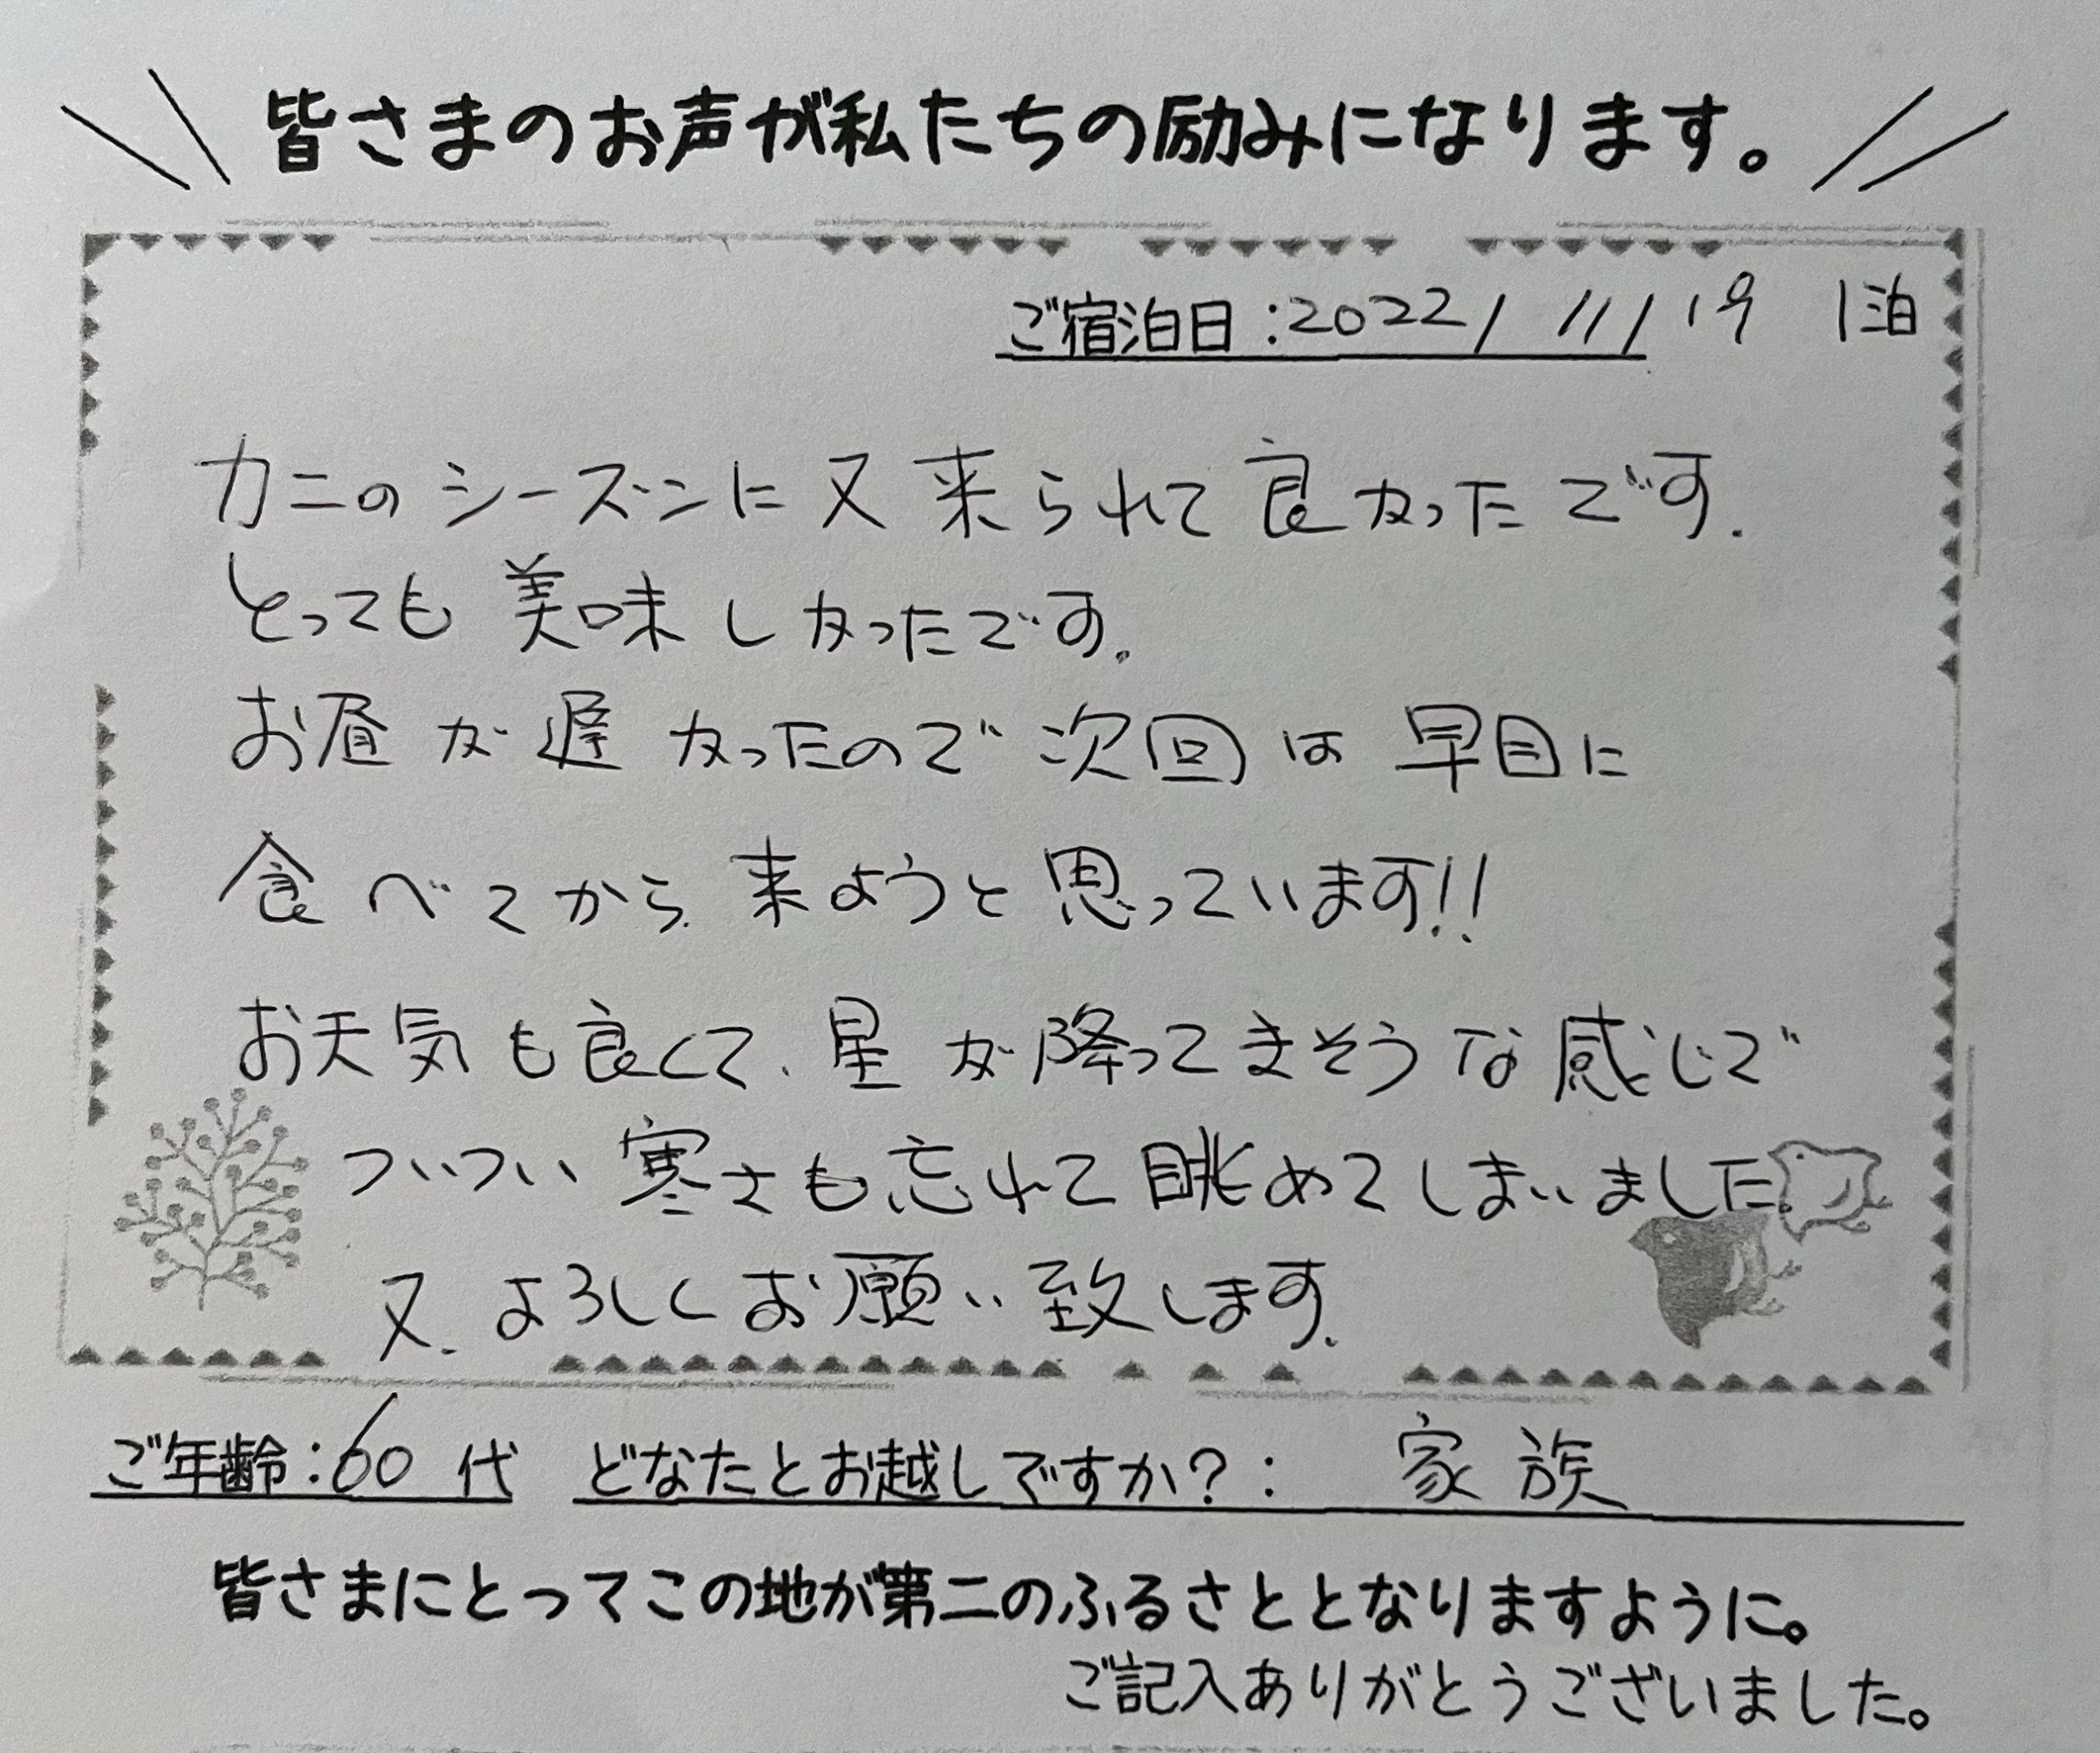 皆さまのお声が私たちの励みになります。
ご宿泊日:2022/11/19 1泊
カニのシーズンに又来られて良かったです.
とっても美味しかったです.
お昼が遅かったので次回は早目に
食べてから来ようと思っています!!
お天気も良くて、星が降ってきそうな感じで
ついつい寒さも忘れて眺めてしまいました.
又、よろしくお願い致します.
ご年齢:60代 どなたとお越しですか?: 家族
皆さまにとってこの地が第二のふるさととなりますように。
ご記入ありがとうございました。